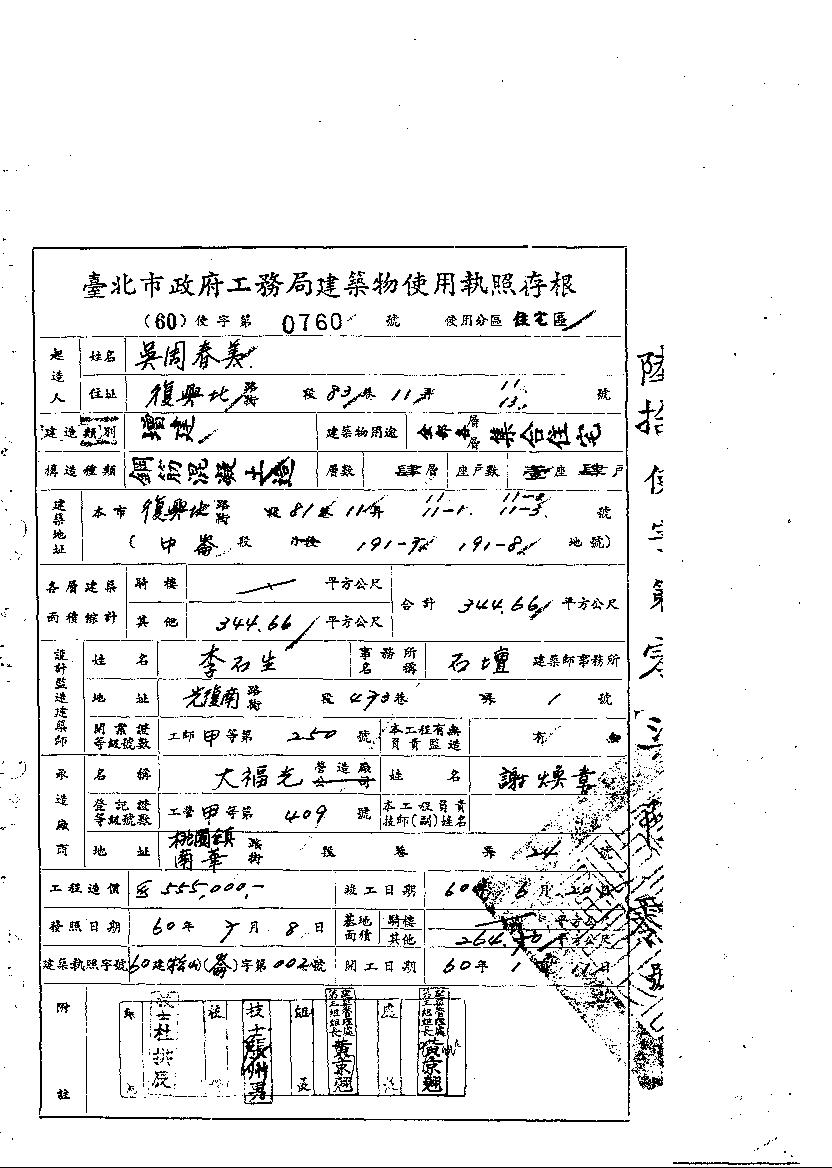 臺北市政府工務局建築物使用執照存根
(60)使字第 0760 號 使用分區 住宅區
起造人 姓名 吳周春美
住址 復興北 路街 段 83 巷 11 弄 11. 13. 號
建造類別 增建 建築物用途 層層 集合住宅
構造種類 鋼筋混凝土造 層數 肆層 座戶數 壹座 肆戶
建築地址 本市 復興北 路街 段 81 巷 11 弄 11 11-1. 11-2 11-3. 號
( 中崙 段 小段 191-7 191-8 地號)
各層建築面積綜計 騎樓 平方公尺 合計 344.66 平方公尺
其他 344.66 平方公尺
設計監造建築師 姓名 李石生 事務所名稱 石壇 建築師事務所
地址 光復南 路街 段 473 巷 弄 1 號
開業證等級號數 工師 甲 等第 250 號 本工程有無負責監造 有
承造廠商 名稱 大福光 營造廠公司 姓名 謝煥喜
登記證等級號數 工營 甲 等第 409 號 本工程負責技師(副)姓名
地址 桃園鎮南華 路街 段 巷 弄 24 號
工程造價 555,000,- 竣工日期 60年 6月 20日
發照日期 60年 7月 8日 基地面積 騎樓 平方公尺
其他 264. 平方公尺
建築執照字號 60建 (崙)字第002號 開工日期 60年 1月 11日
附註
技士杜
技士張
組長
建築管理處第三組組長黃京翹
處長
建築管理處第三組組長黃京翹
陸拾使字第零
零 號